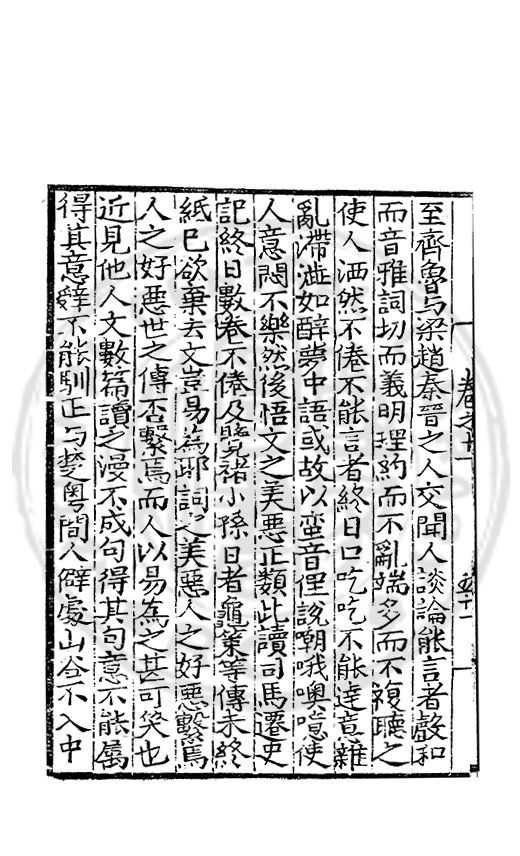 卷之十一
至齊魯与梁趙秦晉之人交聞人談論能言者聲和
而音雅詞切而義明理約而不亂端多而不複聽之
使人洒然不倦不能言者終日口吃吃不能達意雜
亂滯澁如醉夢中語或故以蠻音俚說嘲哦噢噫使
人意悶不樂然後悟文之美惡正類此讀司馬遷史
記終日數卷不倦及覽褚小孫日者龜策等傳未終
紙已欲棄去文豈易為邪詞之美惡人之好惡繫焉
人之好惡世之傳否繫焉而人以易為之甚可笑也
近見他人文數篇讀之漫不成句得其句意不能屬
得其意辭不能馴正与楚粤間人僻處山谷不入中